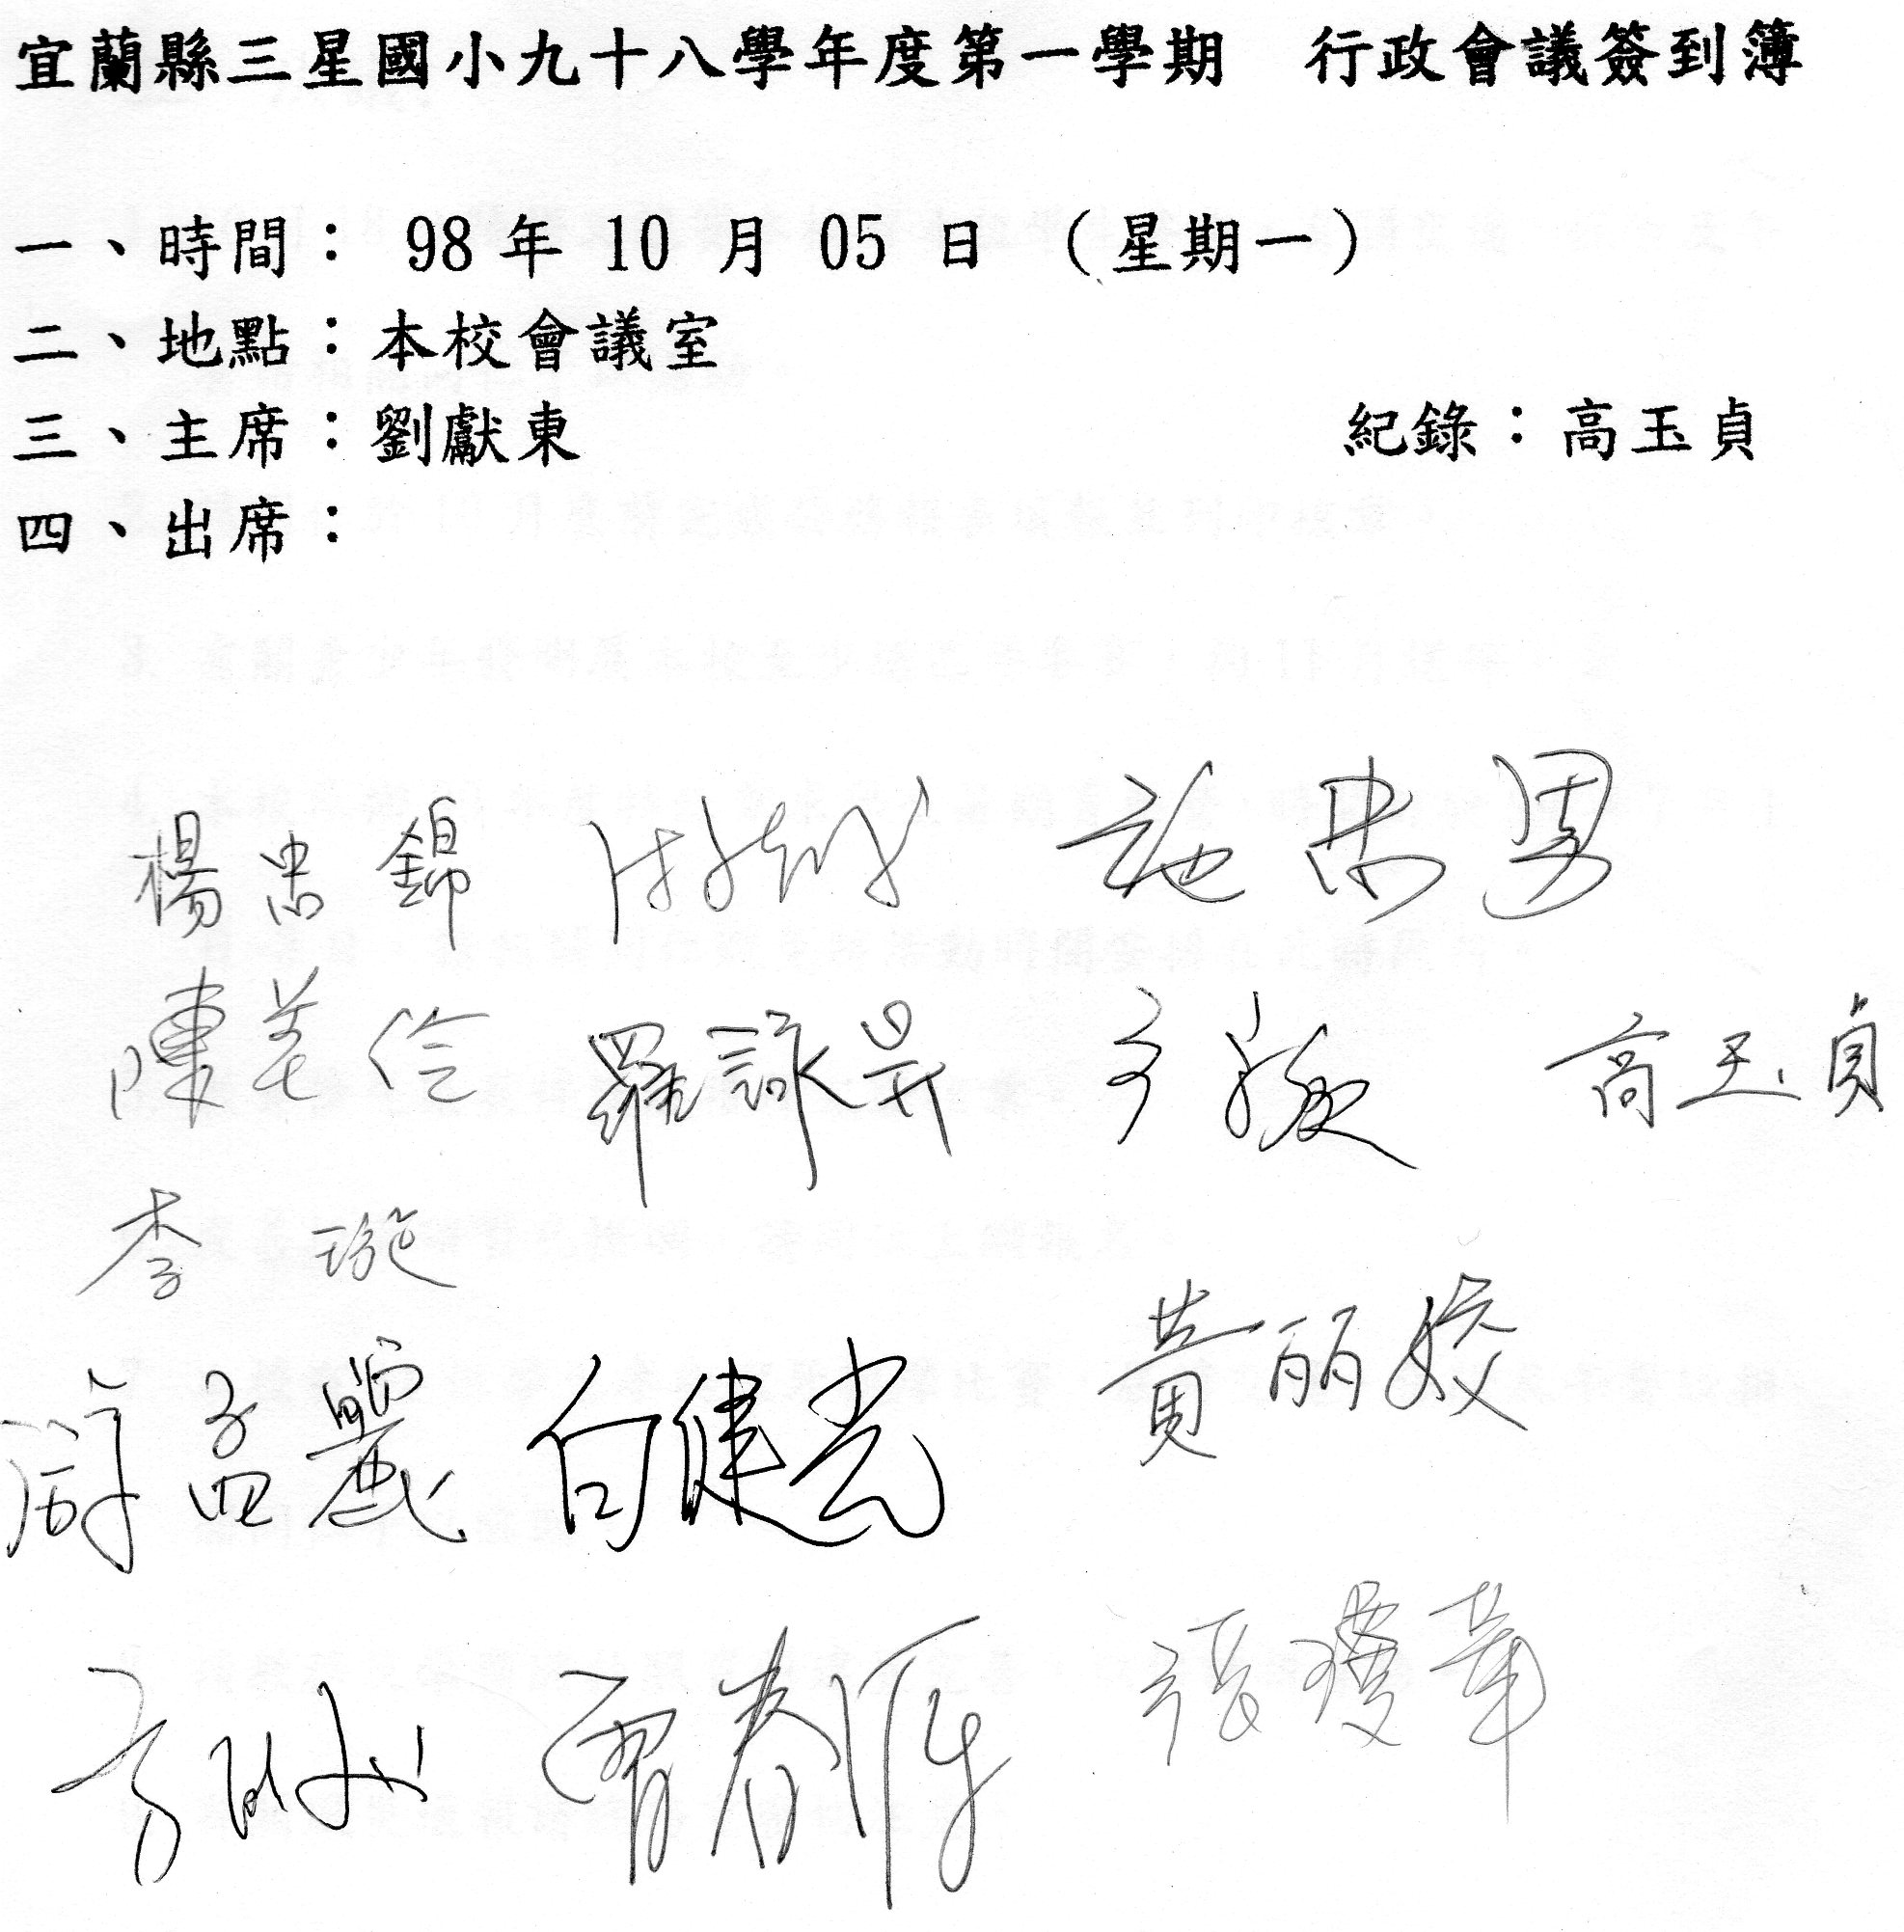 宜蘭縣三星國小九十八學年度第一學期　行政會議簽到簿
一、時間： 98 年 10 月 05 日 （星期一）
二、地點：本校會議室
三、主席：劉獻東　　紀錄：高玉貞
四、出席：
楊忠錦
陳美伶 羅詠昇 高玉貞
李璇
黃丽姣
游孟麗 白健光